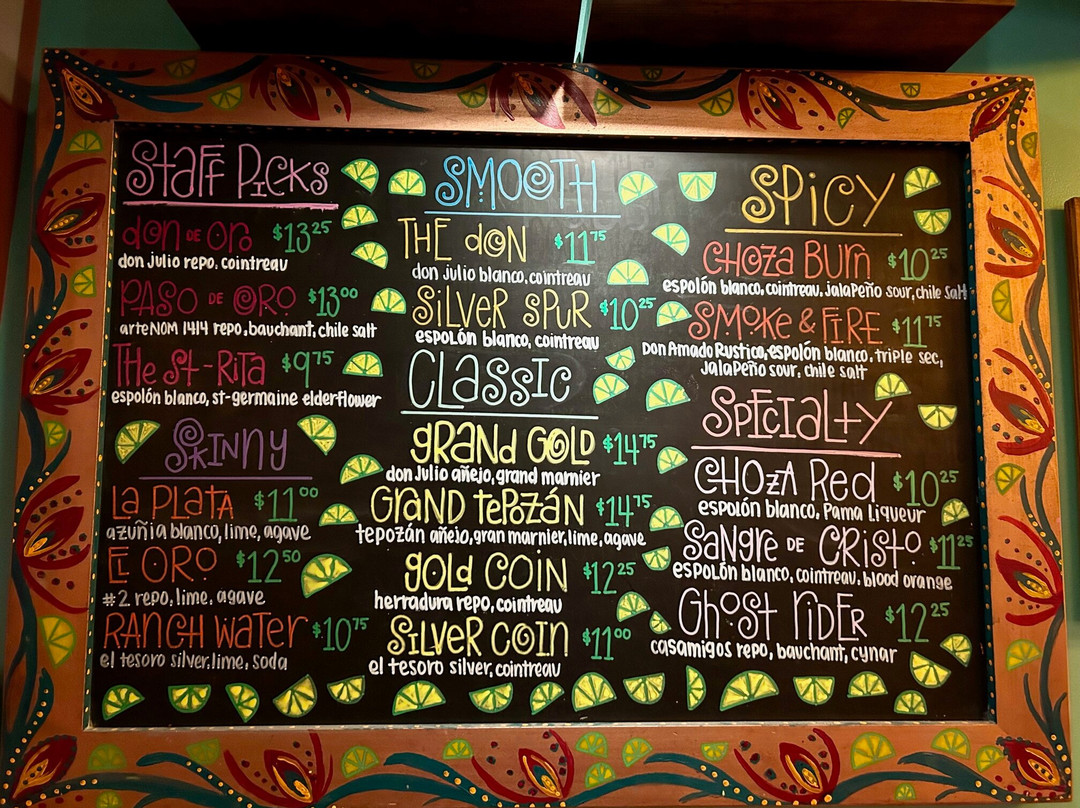 Staff Picks
don DE Oro $13 25
don julio repo, cointreau
PASO DE ORO $13 00
arteNOM 1414 repo, bauchant, chile salt
The St-Rita $9 75
espolón blanco, st-germaine elderflower
SKINNY
LA PLATA $11 00
azuñia blanco, lime, agave
El ORO $12 50
#2 repo, lime, agave
RANCH WATER $10 75
el tesoro silver, lime, soda
SMOOTH
THE dON $11 75
don julio blanco, cointreau
SILVER SPUR $10 25
espolón blanco, cointreau
CLASSIC
GRANd GOLD $14 75
don Julio añejo, grand marnier
GRAND tEPOZÁN $14 75
tepozán añejo, gran marnier, lime, agave
gOLd COIN $12 25
herradura repo, cointreau
SILVER COIN $11 00
el tesoro silver, cointreau
SPICY
CHOZA BURn $10 25
espolón blanco, cointreau, jalaPeño sour, chile salt
SMOKE & FIRE $11 75
Don Amado Rustico, espolón blanco, triple sec,
JalaPeño sour, chile salt
SPECIALTY
CHOZA Red $10 25
espolón blanco, Pama Liqueur
SANGRE DE CRISTO $11 25
espolón blanco, cointreau, blood orange
GhOST RIDER $12 25
casamigos repo, bauchant, cynar